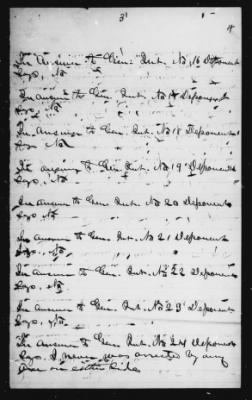 3
In Answer to Gen. Int. No 16 Deponent
Says, No
In answer to Gen. Int. No 17 Deponent
Says, No
In Answer to Gen. Int. No 18 Deponent
Says No
In answer to Gen. Int. No 19 Deponent
Says, No
In answer to Gen. Int. No 20 Deponent
Says No
In answer to Gen. Int. No 21 Deponent
Says, No
In answer to Gen. Int. No 22 Deponent
Says, No
In answer to Gen. Int. No 23 Deponent
Says, No
In answer to Gen. Int. No 24 Deponent
Says, I never was arrested by any
one on either side